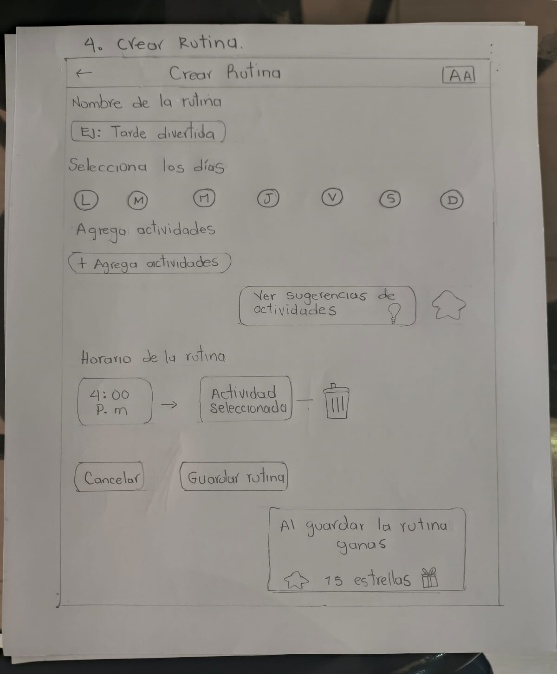 4. Crear Rutina.
← Crear Rutina AA
Nombre de la rutina
EJ: Tarde divertida
Selecciona los días
L M M J V S D
Agrega actividades
+ Agrega actividades
Ver sugerencias de
actividades
Horario de la rutina
4:00
P.m
→
Actividad
seleccionada
Cancelar
Guardar rutina
Al guardar la rutina
ganas
15 estrellas